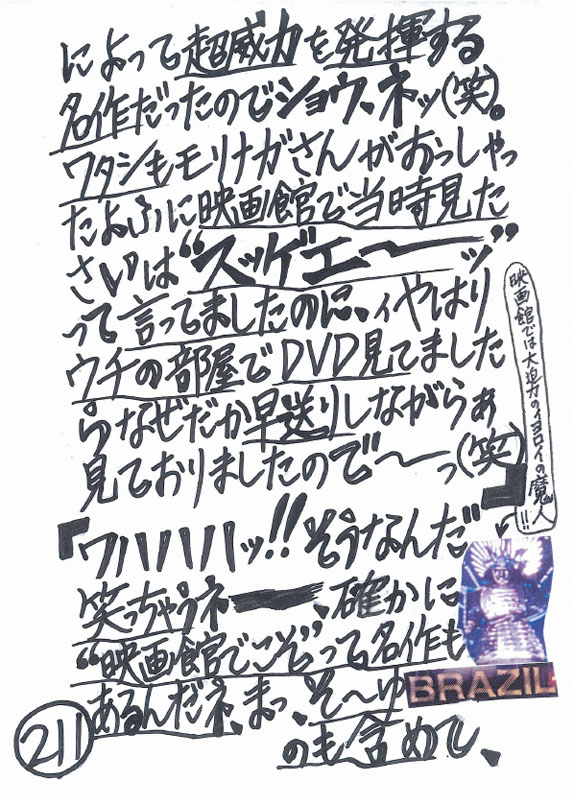 によって超威力を発揮する
名作だったのでショウ、ネッ(笑)。
ワタシもモリナガさんがおっしゃっ
たよふに映画館で当時見た
さいは“スッゲエ〜ッ”
って言ってましたのに、ィやはり
ウチの部屋でDVD見てました
らなぜだか早送りしながらぁ
見ておりましたので〜っ(笑)』
映画館では大迫力のィヨロイの魔人!!
『ワハハハッ!!そうなんだ
笑っちゃうネー、確かに
“映画館でこそ”って名作も
あるんだネ、まっ、そ〜ゆ
のも含めて、
BRAZIL
211